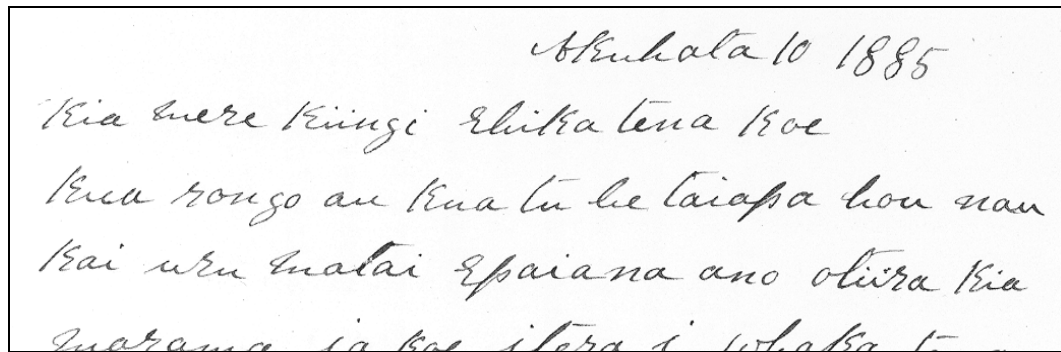 Akuhata 10 1885
Kia Mere Kiingi Ehika tena Koe
Kua rongo au Kua tu he taiapa hou nau
Kai uru Matai Epaiana ano otiira Kia
marama ia Koe itera i whaka